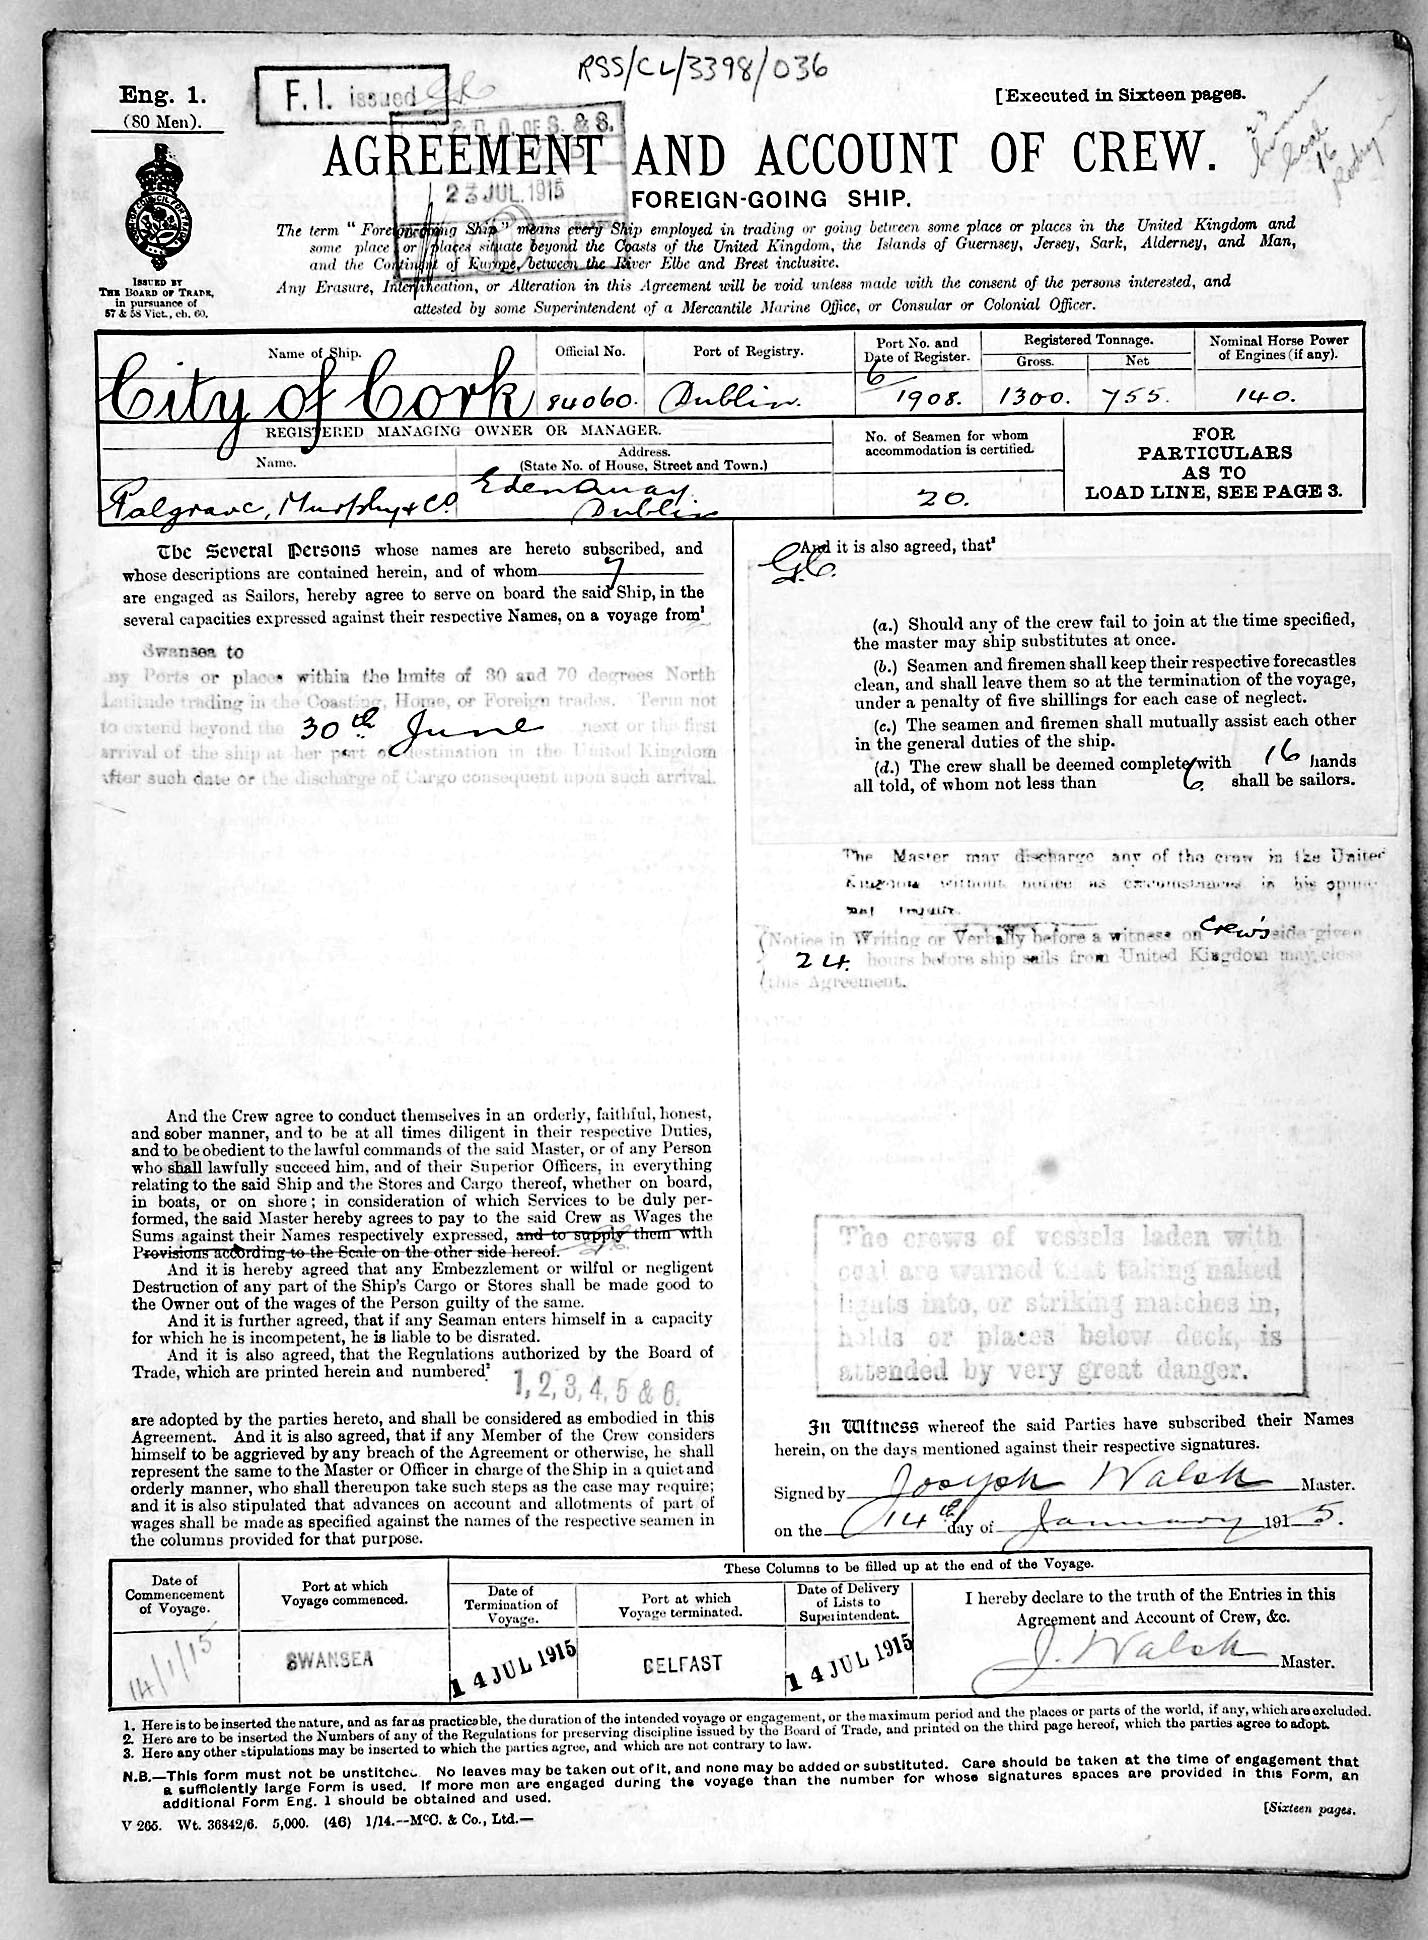 RSS/CL/3398/036
Eng. 1.
(80 Men).
F. I. issued
[Executed in Sixteen pages.
OF S. & S.
23 JUL. 1915
AGREEMENT AND ACCOUNT OF CREW.
FOREIGN-GOING SHIP.
ISSUED BY
THE BOARD OF TRADE,
in pursuance of
57 & 58 Vict., ch. 60.
The term "Foreign-going Ship" means every Ship employed in trading or going between some place or places in the United Kingdom and
some place or places situate beyond the Coasts of the United Kingdom, the Islands of Guernsey, Jersey, Sark, Alderney, and Man,
and the Continent of Europe, between the River Elbe and Brest inclusive.
Any Erasure, Interlineation, or Alteration in this Agreement will be void unless made with the consent of the persons interested, and
attested by some Superintendent of a Mercantile Marine Office, or Consular or Colonial Officer.
Name of Ship.
Official No.
Port of Registry.
Port No. and
Date of Register.
Registered Tonnage.
Gross.
Net
Nominal Horse Power
of Engines (if any).
City of Cork
84060.
Dublin.
6/1908.
1300.
755.
140.
REGISTERED MANAGING OWNER OR MANAGER.
Name.
Address.
(State No. of House, Street and Town.)
No. of Seamen for whom
accommodation is certified.
FOR
PARTICULARS
AS TO
LOAD LINE, SEE PAGE 3.
Palgrave, Murphy & Co
Eden Quay.
Dublin
20.
The Several Persons whose names are hereto subscribed, and
whose descriptions are contained herein, and of whom 7
are engaged as Sailors, hereby agree to serve on board the said Ship, in the
several capacities expressed against their respective Names, on a voyage from¹
Swansea to
any Ports or places within the limits of 30 and 70 degrees North
Latitude trading in the Coasting, Home, or Foreign trades. Term not
to extend beyond the 30th June next or the first
arrival of the ship at her port of destination in the United Kingdom
after such date or the discharge of Cargo consequent upon such arrival.
And the Crew agree to conduct themselves in an orderly, faithful, honest,
and sober manner, and to be at all times diligent in their respective Duties,
and to be obedient to the lawful commands of the said Master, or of any Person
who shall lawfully succeed him, and of their Superior Officers, in everything
relating to the said Ship and the Stores and Cargo thereof, whether on board,
in boats, or on shore; in consideration of which Services to be duly per-
formed, the said Master hereby agrees to pay to the said Crew as Wages the
Sums against their Names respectively expressed, and to supply them with
Provisions according to the Scale on the other side hereof.
And it is hereby agreed that any Embezzlement or wilful or negligent
Destruction of any part of the Ship's Cargo or Stores shall be made good to
the Owner out of the wages of the Person guilty of the same.
And it is further agreed, that if any Seaman enters himself in a capacity
for which he is incompetent, he is liable to be disrated.
And it is also agreed, that the Regulations authorized by the Board of
Trade, which are printed herein and numbered²
1, 2, 3, 4, 5 & 6.
are adopted by the parties hereto, and shall be considered as embodied in this
Agreement. And it is also agreed, that if any Member of the Crew considers
himself to be aggrieved by any breach of the Agreement or otherwise, he shall
represent the same to the Master or Officer in charge of the Ship in a quiet and
orderly manner, who shall thereupon take such steps as the case may require;
and it is also stipulated that advances on account and allotments of part of
wages shall be made as specified against the names of the respective seamen in
the columns provided for that purpose.
And it is also agreed, that³
(a.) Should any of the crew fail to join at the time specified,
the master may ship substitutes at once.
(b.) Seamen and firemen shall keep their respective forecastles
clean, and shall leave them so at the termination of the voyage,
under a penalty of five shillings for each case of neglect.
(c.) The seamen and firemen shall mutually assist each other
in the general duties of the ship.
(d.) The crew shall be deemed complete with 16 hands
all told, of whom not less than 6. shall be sailors.
The Master may discharge any of the crew in the United
Kingdom without notice as circumstances in his opinion
may require.
(Notice in Writing or Verbally before a witness on Crew's side given
24. hours before ship sails from United Kingdom may close
(this Agreement.
The crews of vessels laden with
coal are warned that taking naked
lights into, or striking matches in,
holds or places below deck, is
attended by very great danger.
In Witness whereof the said Parties have subscribed their Names
herein, on the days mentioned against their respective signatures.
Signed by Joseph Walsh Master.
on the 14th day of January 1915.
Date of
Commencement
of Voyage.
Port at which
Voyage commenced.
These Columns to be filled up at the end of the Voyage.
Date of
Termination of
Voyage.
Port at which
Voyage terminated.
Date of Delivery
of Lists to
Superintendent.
I hereby declare to the truth of the Entries in this
Agreement and Account of Crew, &c.
14/1/15
SWANSEA
14 JUL 1915
BELFAST
14 JUL 1915
J. Walsh Master.
1. Here is to be inserted the nature, and as far as practicable, the duration of the intended voyage or engagement, or the maximum period and the places or parts of the world, if any, which are excluded.
2. Here are to be inserted the Numbers of any of the Regulations for preserving discipline issued by the Board of Trade, and printed on the third page hereof, which the parties agree to adopt.
3. Here any other stipulations may be inserted to which the parties agree, and which are not contrary to law.
N.B.—This form must not be unstitched. No leaves may be taken out of it, and none may be added or substituted. Care should be taken at the time of engagement that
a sufficiently large Form is used. If more men are engaged during the voyage than the number for whose signatures spaces are provided in this Form, an
additional Form Eng. 1 should be obtained and used.
[Sixteen pages.
V 265. Wt. 36842/6. 5,000. (46) 1/14.--McC. & Co., Ltd.—